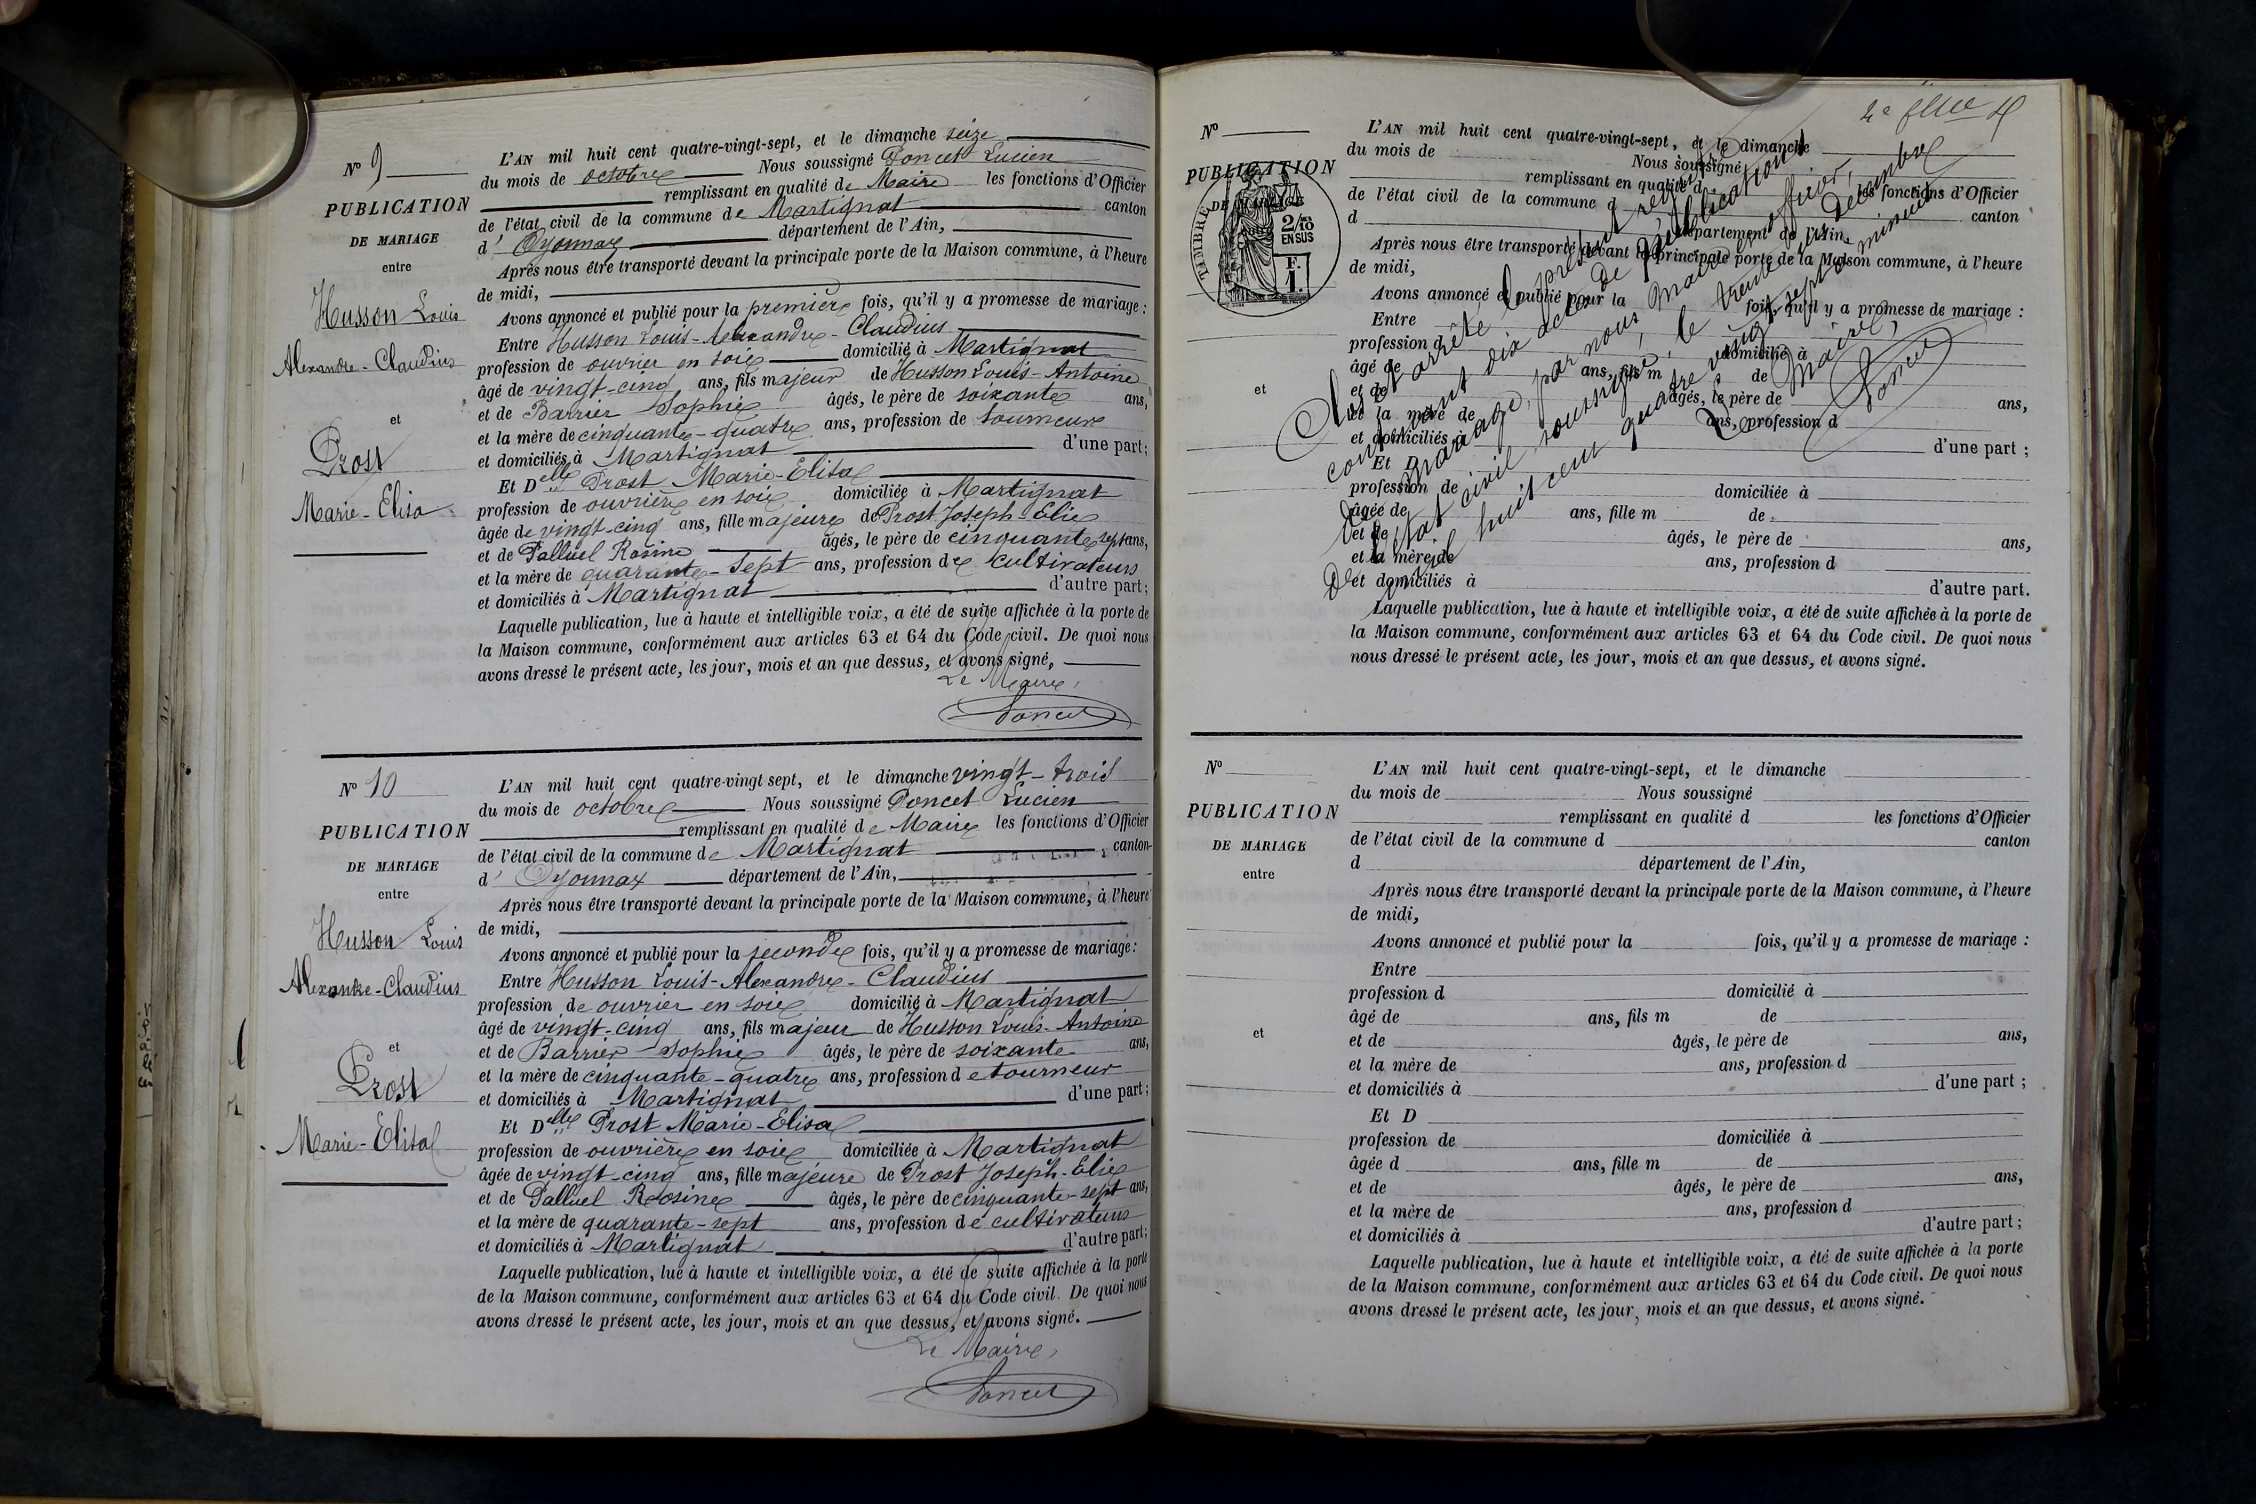 N° 9
PUBLICATION
DE MARIAGE
entre
Husson Louis
Alexandre-Claudius
et
Prost
Marie-Elisa
L'AN mil huit cent quatre-vingt-sept, et le dimanche seize
du mois de octobre Nous soussigné Poncet Lucien
remplissant en qualité de Maire les fonctions d'Officier
de l'état civil de la commune de Martignat canton
d' Oyonnax département de l'Ain,
Après nous être transporté devant la principale porte de la Maison commune, à l'heure
de midi,
Avons annoncé et publié pour la première fois, qu'il y a promesse de mariage :
Entre Husson Louis-Alexandre-Claudius
profession de ouvrier en soie domicilié à Martignat
âgé de vingt-cinq ans, fils majeur de Husson Louis-Antoine
et de Barrier Sophie âgés, le père de soixante ans,
et la mère de cinquante-quatre ans, profession de tourneur
et domiciliés à Martignat d'une part;
Et Delle Prost Marie-Elisa
profession de ouvrière en soie domiciliée à Martignat
âgée de vingt-cinq ans, fille majeure de Prost Joseph-Elie
et de Palluel Rosine âgés, le père de cinquante sept ans,
et la mère de quarante-sept ans, profession de cultivateurs
et domiciliés à Martignat d'autre part;
Laquelle publication, lue à haute et intelligible voix, a été de suite affichée à la porte de
la Maison commune, conformément aux articles 63 et 64 du Code civil. De quoi nous
avons dressé le présent acte, les jour, mois et an que dessus, et avons signé,
Le Maire,
Poncet
N° 10
PUBLICATION
DE MARIAGE
entre
Husson Louis
Alexandre-Claudius
et
Prost
Marie-Elisa
L'AN mil huit cent quatre-vingt sept, et le dimanche vingt-trois
du mois de octobre Nous soussigné Poncet Lucien
remplissant en qualité de Maire les fonctions d'Officier
de l'état civil de la commune de Martignat canton
d' Oyonnax département de l'Ain,
Après nous être transporté devant la principale porte de la Maison commune, à l'heure
de midi,
Avons annoncé et publié pour la seconde fois, qu'il y a promesse de mariage:
Entre Husson Louis-Alexandre-Claudius
profession de ouvrier en soie domicilié à Martignat
âgé de vingt-cinq ans, fils majeur de Husson Louis-Antoine
et de Barrier Sophie âgés, le père de soixante ans,
et la mère de cinquante-quatre ans, profession de tourneur
et domiciliés à Martignat d'une part;
Et Delle Prost Marie-Elisa
profession de ouvrière en soie domiciliée à Martignat
âgée de vingt-cinq ans, fille majeure de Prost Joseph-Elie
et de Palluel Rosine âgés, le père de cinquante-sept ans,
et la mère de quarante-sept ans, profession de cultivateurs
et domiciliés à Martignat d'autre part;
Laquelle publication, lue à haute et intelligible voix, a été de suite affichée à la porte
de la Maison commune, conformément aux articles 63 et 64 du Code civil. De quoi nous
avons dressé le présent acte, les jour, mois et an que dessus, et avons signé.
Le Maire,
Poncet
N°
PUBLICATION
DE MARIAGE
TIMBRE
2/10
EN SUS
F.
1.
et
L'AN mil huit cent quatre-vingt-sept, et le dimanche
du mois de Nous soussigné
remplissant en qualité d les fonctions d'Officier
de l'état civil de la commune d canton
d département de l'Ain,
Après nous être transporté devant la principale porte de la Maison commune, à l'heure
de midi,
Avons annoncé et publié pour la fois, qu'il y a promesse de mariage :
Entre
profession d domicilié à
âgé de ans, fils m de
et de âgés, le père de ans,
et la mère de ans, profession d
et domiciliés à d'une part ;
Et D
profession de domiciliée à
âgée de ans, fille m de
et de âgés, le père de ans,
et la mère de ans, profession d
et domiciliés à d'autre part.
Laquelle publication, lue à haute et intelligible voix, a été de suite affichée à la porte de
la Maison commune, conformément aux articles 63 et 64 du Code civil. De quoi nous
nous dressé le présent acte, les jour, mois et an que dessus, et avons signé.
Clos et arrêté le présent registre
contenant dix actes de publications
de mariage, par nous Maire, officier
de l'état civil soussigné, le trente un décembre
mil huit cent quatre vingt sept à minuit
Le Maire,
Poncet
N°
PUBLICATION
DE MARIAGE
entre
et
L'AN mil huit cent quatre-vingt-sept, et le dimanche
du mois de Nous soussigné
remplissant en qualité d les fonctions d'Officier
de l'état civil de la commune d canton
d département de l'Ain,
Après nous être transporté devant la principale porte de la Maison commune, à l'heure
de midi,
Avons annoncé et publié pour la fois, qu'il y a promesse de mariage :
Entre
profession d domicilié à
âgé de ans, fils m de
et de âgés, le père de ans,
et la mère de ans, profession d
et domiciliés à d'une part ;
Et D
profession de domiciliée à
âgée d ans, fille m de
et de âgés, le père de ans,
et la mère de ans, profession d
et domiciliés à d'autre part ;
Laquelle publication, lue à haute et intelligible voix, a été de suite affichée à la porte
de la Maison commune, conformément aux articles 63 et 64 du Code civil. De quoi nous
avons dressé le présent acte, les jour, mois et an que dessus, et avons signé.